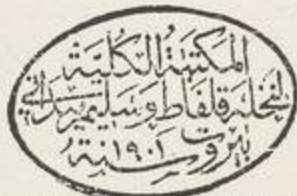 المكتبة الكلية
لنخله قلفاط وسليم ميداني
بيروت
سنة ١٩٠١